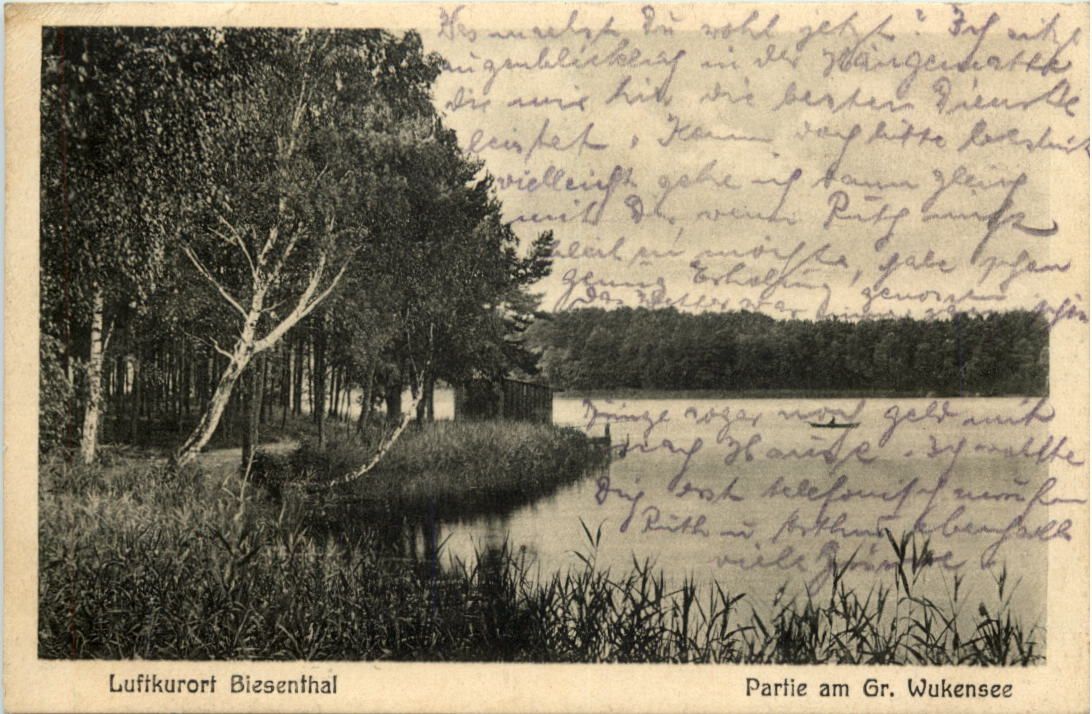 Was machst Du wohl jetzt? Ich sitze
augenblicklich in der Hängematte
die mir hier die besten Dienste
leistet. Komm doch bitte
vielleicht gehe ich dann gleich
mit Dir, wenn Ruth nicht
möchte, habe schon
genug Erholung genossen
Das Wetter war immer schön
Bringe sogar noch Geld mit
nach Hause. Ich wollte
Dich erst telefonisch anrufen
Ruth u. Arthur ebenfalls
viele Grüsse.
Luftkurort Biesenthal
Partie am Gr. Wukensee